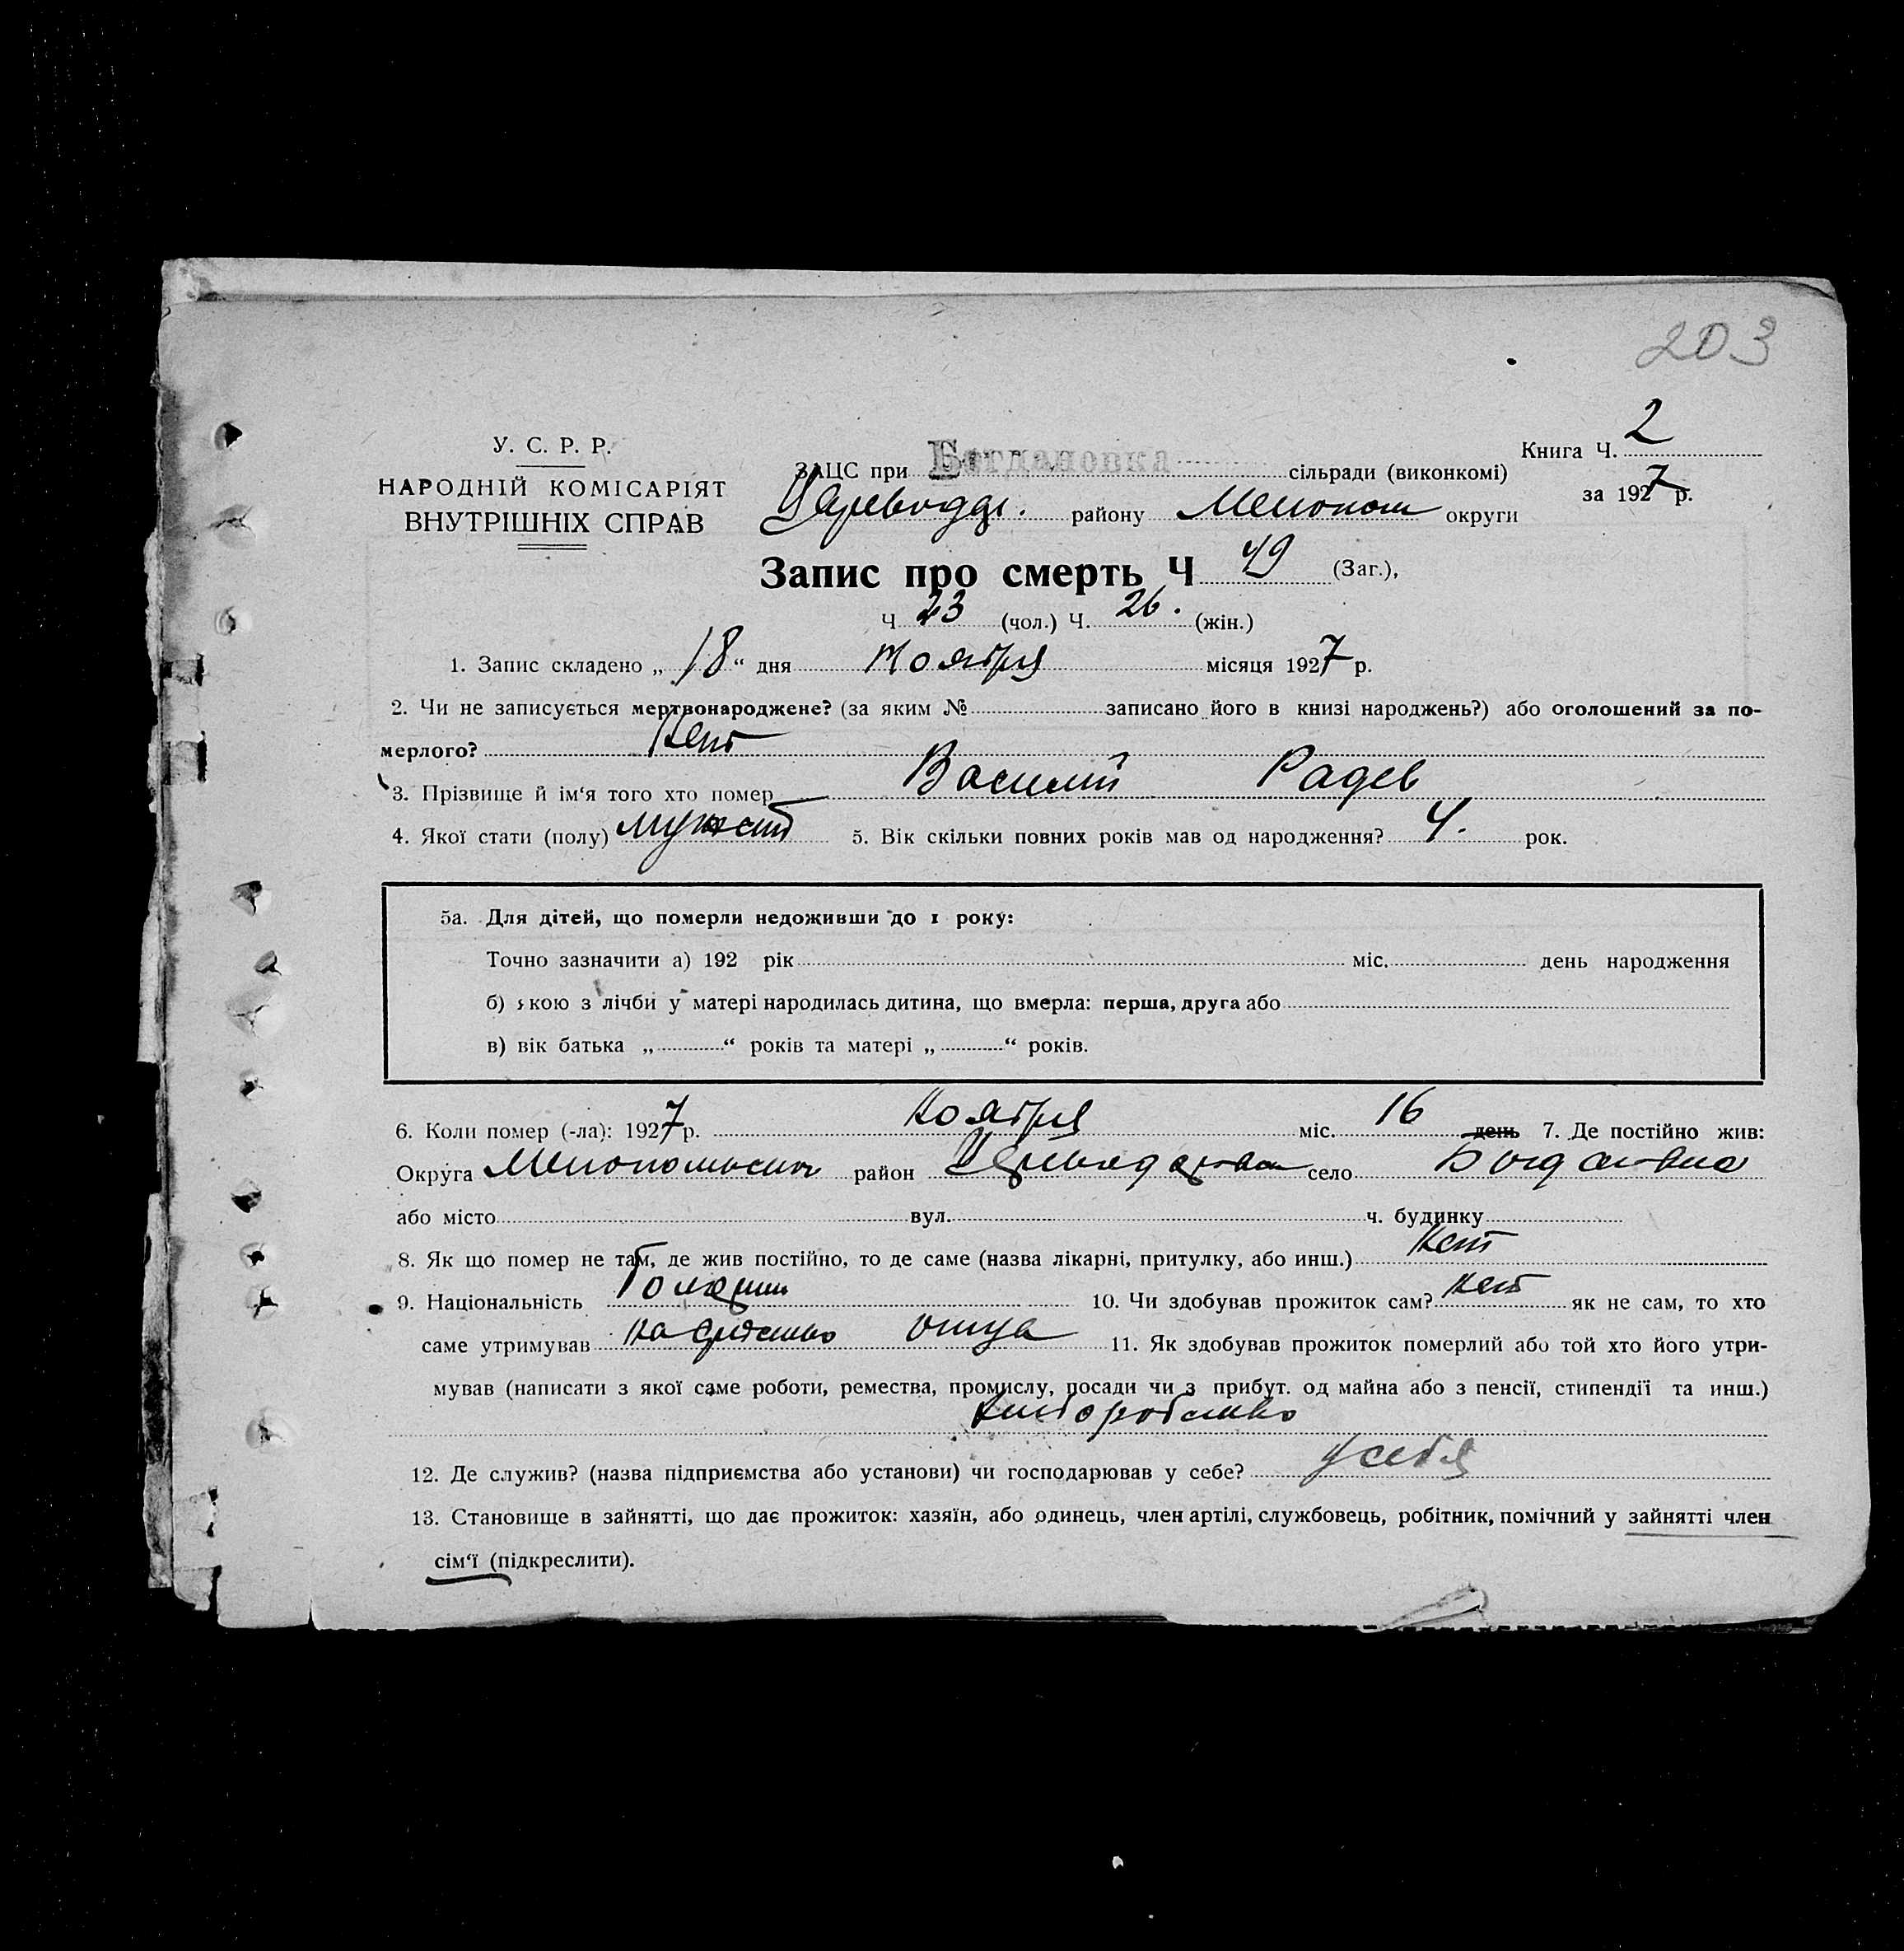 203
У. С. Р. Р.
НАРОДНІЙ КОМІСАРІЯТ
ВНУТРІШНІХ СПРАВ
ЗАЦС при Богдановка сільради (виконкомі)
району Мелитоп округи
Книга Ч. 2
за 1927 р.
Запис про смерть Ч 49 (Заг.),
Ч 23 (чол.) Ч. 26. (жін.)
1. Запис складено „ 18 “ дня Ноября місяця 1927 р.
2. Чи не записується мертвонароджене? (за яким № записано його в книзі народжень?) або оголошений за по-
мерлого? Нет
3. Прізвище й ім‘я того хто помер Василий Радев
4. Якої стати (полу) 5. Вік скільки повних років мав од народження? 4. рок.
5а. Для дітей, що померли недоживши до 1 року:
Точно зазначити а) 192 рік міс. день народження
б) якою з лічби у матері народилась дитина, що вмерла: перша, друга або
в) вік батька „ “ років та матері „ “ років.
6. Коли помер (-ла): 1927 р. Ноября міс. 16 день 7. Де постійно жив:
Округа район село Богдановка
або місто вул. ч. будинку
8. Як що помер не там, де жив постійно, то де саме (назва лікарні, притулку, або инш.) Нет
9. Національність Болгарин 10. Чи здобував прожиток сам? Нет як не сам, то хто
саме утримував на средства отца 11. Як здобував прожиток померлий або той хто його утри-
мував (написати з якої саме роботи, ремества, промислу, посади чи з прибут. од майна або з пенсії, стипендії та инш.)
12. Де служив? (назва підприємства або установи) чи господарював у себе? у себя
13. Становище в зайнятті, що дає прожиток: хазяїн, або одинець, член артілі, службовець, робітник, помічний у зайнятті член
сім‘ї (підкреслити).